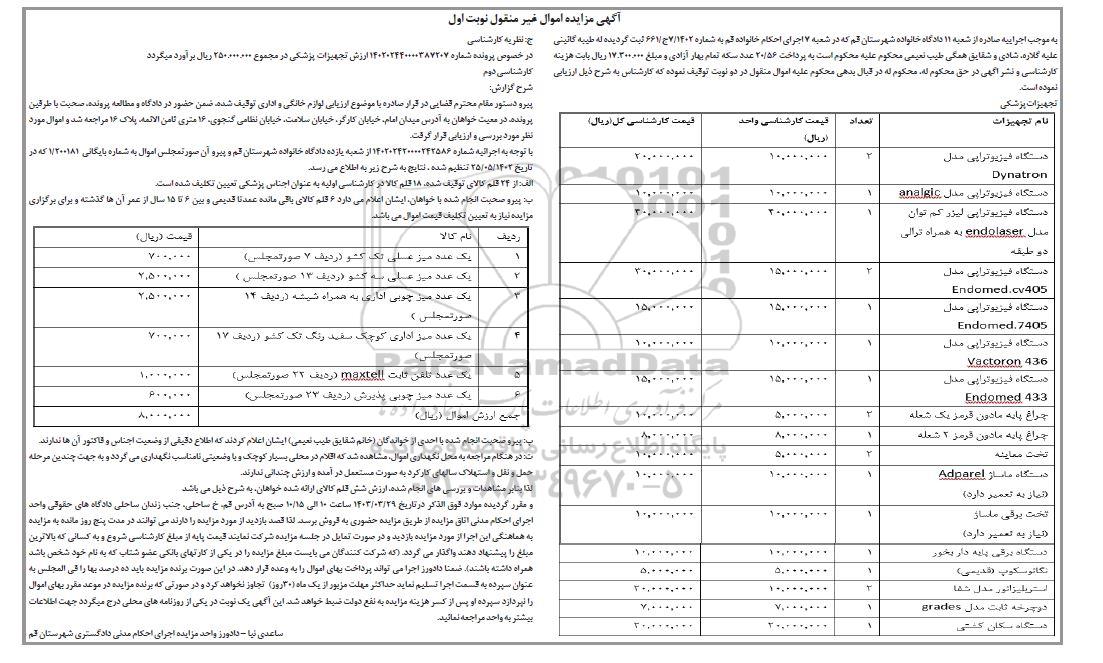 آگهی مزایده اموال غیر منقول نوبت اول
به موجب اجراییه صادره از شعبه ۱۱ دادگاه خانواده شهرستان قم که در شعبه ۷ اجرای احکام خانواده قم به شماره ۷/۱۴۰۲ج/۶۶۱ ثبت گردیده له طیبه گائینی
علیه گلاره، شادی و شقایق همگی طیب نعیمی محکوم علیه محکوم است به پرداخت ۲۰/۵۶ عدد سکه تمام بهار آزادی و مبلغ ۱۷.۳۰۰.۰۰۰ ریال بابت هزینه
کارشناسی و نشر اگهی در حق محکوم له، محکوم له در قبال بدهی محکوم علیه اموال منقول در دو نوبت توقیف نموده که کارشناس به شرح ذیل ارزیابی
نموده است.
تجهیزات پزشکی
نام تجهیزات تعداد قیمت کارشناسی واحد (ریال) قیمت کارشناسی کل(ریال)
دستگاه فیزیوتراپی مدل Dynatron ۲ ۱۰,۰۰۰,۰۰۰ ۲۰,۰۰۰,۰۰۰
دستگاه فیزیوتراپی مدل analgic ۱ ۱۰,۰۰۰,۰۰۰ ۱۰,۰۰۰,۰۰۰
دستگاه فیزیوتراپی لیزر کم توان
مدل endolaser به همراه ترالی
دو طبقه ۱ ۲۰,۰۰۰,۰۰۰ ۲۰,۰۰۰,۰۰۰
دستگاه فیزیوتراپی مدل
Endomed.cv405 ۲ ۱۵,۰۰۰,۰۰۰ ۳۰,۰۰۰,۰۰۰
دستگاه فیزیوتراپی مدل
Endomed.7405 ۱ ۱۵,۰۰۰,۰۰۰ ۱۵,۰۰۰,۰۰۰
دستگاه فیزیوتراپی مدل
Vactoron 436 ۱ ۱۰,۰۰۰,۰۰۰ ۱۰,۰۰۰,۰۰۰
دستگاه فیزیوتراپی مدل
Endomed 433 ۱ ۱۵,۰۰۰,۰۰۰ ۱۵,۰۰۰,۰۰۰
چراغ پایه مادون قرمز یک شعله ۲ ۵,۰۰۰,۰۰۰ ۱۰,۰۰۰,۰۰۰
چراغ پایه مادون قرمز ۲ شعله ۱ ۸,۰۰۰,۰۰۰ ۸,۰۰۰,۰۰۰
تخت معاینه ۲ ۵,۰۰۰,۰۰۰ ۱۰,۰۰۰,۰۰۰
دستگاه ماساژ Adparel
(نیاز به تعمیر دارد) ۱ ۱۰,۰۰۰,۰۰۰ ۱۰,۰۰۰,۰۰۰
تخت برقی ماساژ
(نیاز به تعمیر دارد) ۱ ۱۰,۰۰۰,۰۰۰ ۱۰,۰۰۰,۰۰۰
دستگاه برقی پایه دار بخور ۱ ۱۰,۰۰۰,۰۰۰ ۱۰,۰۰۰,۰۰۰
نگاتوسکوپ (قدیمی) ۱ ۵,۰۰۰,۰۰۰ ۵,۰۰۰,۰۰۰
استریلیزاتور مدل شفا ۲ ۱۰,۰۰۰,۰۰۰ ۲۰,۰۰۰,۰۰۰
دوچرخه ثابت مدل grades ۱ ۷,۰۰۰,۰۰۰ ۷,۰۰۰,۰۰۰
دستگاه سکان کشتی ۱ ۲۰,۰۰۰,۰۰۰ ۲۰,۰۰۰,۰۰۰
ج: نظریه کارشناسی
در خصوص پرونده شماره ۱۴۰۲۰۲۴۴۰۰۰۰۳۸۷۲۰۷ ارزش تجهیزات پزشکی در مجموع ۲۵۰.۰۰۰.۰۰۰ ریال برآورد میگردد
کارشناسی دوم
شرح گزارش:
پیرو دستور مقام محترم قضایی در قرار صادره با موضوع ارزیابی لوازم خانگی و اداری توقیف شده، ضمن حضور در دادگاه و مطالعه پرونده، صحبت با طرفین
پرونده، در معیت خواهان به آدرس میدان امام، خیابان کارگر، خیابان سلامت، خیابان نظامی گنجوی، ۱۶ متری ثامن الائمه، پلاک ۱۶ مراجعه شد و اموال مورد
نظر مورد بررسی و ارزیابی قرار گرفت.
با توجه به اجرائیه شماره ۱۴۰۲۰۲۴۲۰۰۰۰۲۴۲۵۸۶ از شعبه یازده دادگاه خانواده شهرستان قم و پیرو آن صورتمجلس اموال به شماره بایگانی ۱/۲۰۰۱۸۱ که در
تاریخ ۲۵/۰۵/۱۴۰۲ تنظیم شده ، نتایج به شرح زیر به اطلاع می رسد.
الف: از ۲۴ قلم کالای توقیف شده، ۱۸ قلم کالا در کارشناسی اولیه به عنوان اجناس پزشکی تعیین تکلیف شده است.
ب: پیرو صحبت انجام شده با خواهان، ایشان اعلام می دارد ۶ قلم کالای باقی مانده عمدتا قدیمی و بین ۶ تا ۱۵ سال از عمر آن ها گذشته و برای برگزاری
مزایده نیاز به تعیین تکلیف قیمت اموال می باشد.
ردیف نام کالا قیمت (ریال)
۱ یک عدد میز عسلی تک کشو (ردیف ۷ صورتمجلس) ۷۰۰,۰۰۰
۲ یک عدد میز عسلی سه کشو (ردیف ۱۳ صورتمجلس ) ۲,۵۰۰,۰۰۰
۳ یک عدد میز چوبی اداری به همراه شیشه (ردیف ۱۴
صورتمجلس ) ۲,۵۰۰,۰۰۰
۴ یک عدد میز اداری کوچک سفید رنگ تک کشو (ردیف ۱۷
صورتمجلس) ۷۰۰,۰۰۰
۵ یک عدد تلفن ثابت maxtell (ردیف ۲۲ صورتمجلس) ۱,۰۰۰,۰۰۰
۶ یک عدد میز چوبی پذیرش (ردیف ۲۳ صورتمجلس) ۶۰۰,۰۰۰
جمع ارزش اموال (ریال) ۸,۰۰۰,۰۰۰
ب: پیرو صحبت انجام شده با احدی از خواندگان (خانم شقایق طیب نعیمی) ایشان اعلام کردند که اطلاع دقیقی از وضعیت اجناس و فاکتور آن ها ندارند.
ت: در هنگام مراجعه به محل نگهداری اموال، مشاهده شد که اقلام در محلی بسیار کوچک و با وضعیتی نامناسب نگهداری می گردد و به جهت چندین مرحله
حمل و نقل و استهلاک سالهای کارکرد به صورت مستعمل در آمده و ارزش چندانی ندارند.
لذا بنابر مشاهدات و بررسی های انجام شده، ارزش شش قلم کالای ارائه شده خواهان، به شرح ذیل می باشد
و مقرر گردیده موارد فوق الذکر در تاریخ ۱۴۰۳/۰۳/۲۹ ساعت ۱۰ الی ۱۰/۱۵ صبح به آدرس قم، خ ساحلی، جنب زندان ساحلی دادگاه های حقوقی واحد
اجرای احکام مدنی اتاق مزایده از طریق مزایده حضوری به فروش برسد. لذا قصد بازدید از مورد مزایده را دارند می توانند در مدت پنج روز مانده به مزایده
به هماهنگی این اجرا از مورد مزایده بازدید و در صورت تمایل در جلسه مزایده شرکت نمایند قیمت پایه از مبلغ کارشناسی شروع و به کسانی که بالاترین
مبلغ را پیشنهاد دهند واگذار می گردد. (که شرکت کنندگان می بایست مبلغ مزایده را در یکی از کارتهای بانکی عضو شتاب که به نام خود شخص باشد
همراه داشته باشند). ضمنا دادورز اجرا می تواند پرداخت بهای اموال را به وعده قرار دهد. در این صورت برنده مزایده باید ده درصد بها را فی المجلس به
عنوان سپرده به قسمت اجرا تسلیم نماید حداکثر مهلت مزبور از یک ماه (۳۰روز) تجاوز نخواهد کرد و در صورتی که برنده مزایده در موعد مقرر بهای اموال
را نپردازد سپرده او پس از کسر هزینه مزایده به نفع دولت ضبط خواهد شد. این آگهی یک نوبت در یکی از روزنامه های محلی درج میگردد جهت اطلاعات
بیشتر به واحد مراجعه نمائید.
ساعدی نیا – دادورز واحد مزایده اجرای احکام مدنی دادگستری شهرستان قم
ParsNamadData
پایگاه اطلاع رسانی
۰۲۱-۸۸۳۴۹۶۷۰-۵